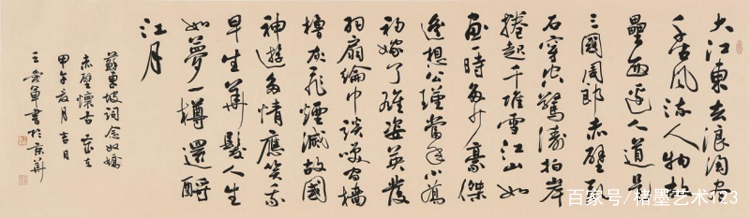 大江東去浪淘盡
千古風流人物故
壘西邊人道是
三國周郎赤壁亂
石穿空驚濤拍岸
捲起千堆雪江山如
畫一時多少豪傑
遙想公瑾當年小喬
初嫁了雄姿英發
羽扇綸巾談笑間檣
櫓灰飛煙滅故國
神遊多情應笑我
早生華髮人生
如夢一樽還酹
江月
蘇東坡詞念奴嬌
赤壁懷古歲在
甲午月吉日
王軍書於京華
百家号/楮墨艺术123